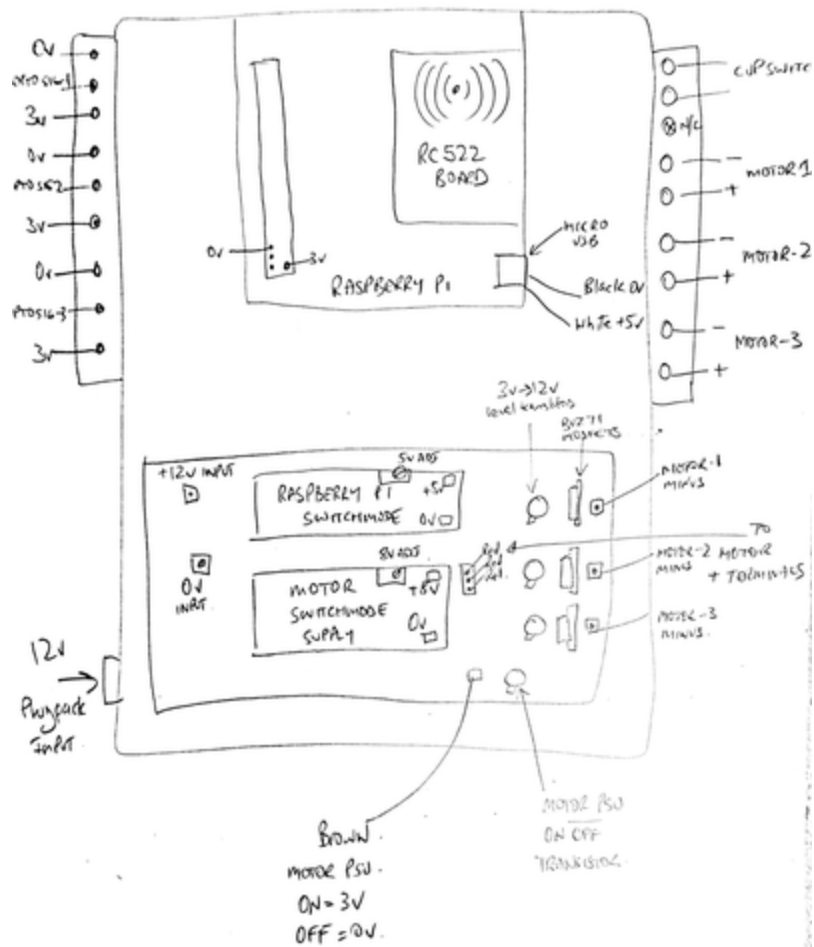 0v
3v
0v
3v
0v
3v
RC522
BOARD
0v
3v
RASPBERRY PI
MICRO
USB
Black 0v
White +5v
CUPSWITC
N/C
-
MOTOR 1
+
-
MOTOR-2
+
-
MOTOR-3
+
3v→12v
BUZ71
MOSFETS
+12V INPUT
5V ADJ
RASPBERRY PI
SWITCHMODE
+5v
0v
0V
INPUT
8V ADJ
MOTOR
SWITCHMODE
SUPPLY
+8V
0v
Red
Red
Red
MOTOR-1
MINUS
TO
MOTOR
+ TERMINALS
MOTOR-2
MINUS
MOTOR-3
MINUS.
12v
Plugpack
INPUT
BROWN
MOTOR PSU.
ON = 3V
OFF = 0V.
MOTOR PSU
ON OFF
TRANSISTOR.